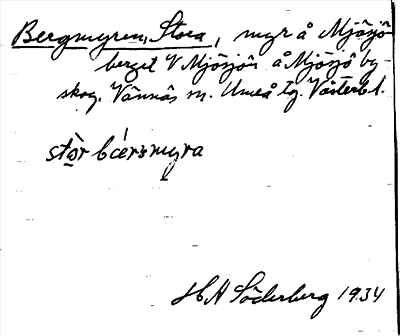 Bergmyren, Stora, myr å Mjösjö-
berget V Mjösjön å Mjösjö by-
skog. Vännäs sn. Umeå tg. Västerb. l.
stòr bǽrsmyra
H A Söderberg 1934